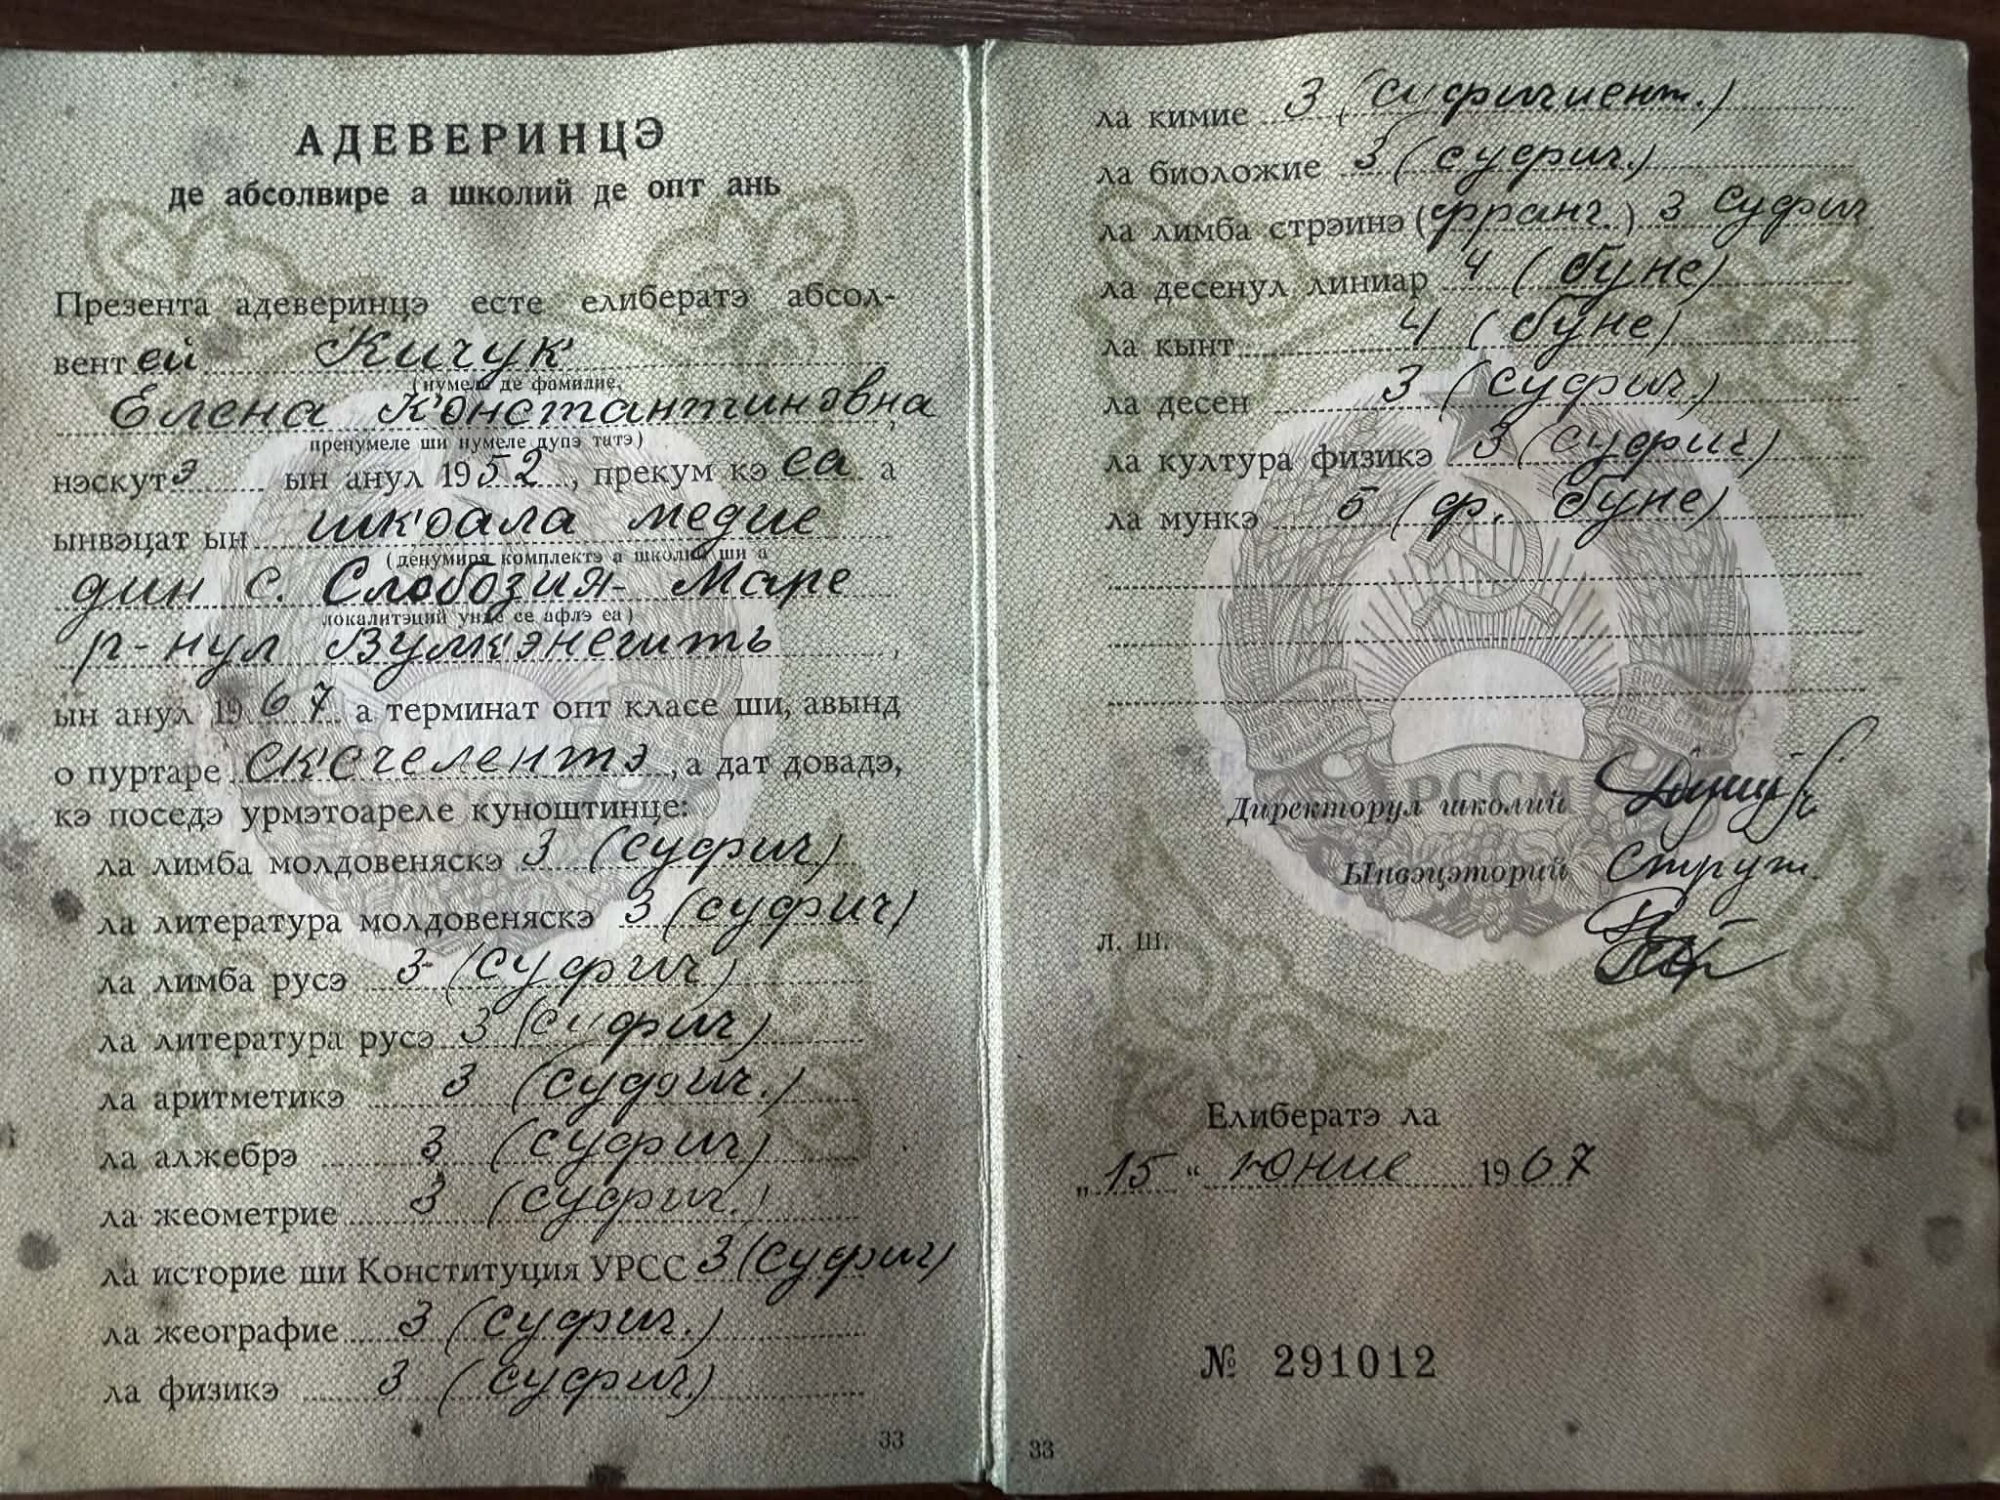 АДЕВЕРИНЦЭ
де абсолвире а школий де опт ань
Презента адеверинцэ есте елибератэ абсол-
вентей Кичук
(нумеле де фамилие,
Елена Константиновна,
пренумеле ши нумеле дупэ татэ)
нэскутэ ын анул 1952, прекум кэ еа а
ынвэцат ын школа медие
(денумиря комплектэ а школий ши а
дин с. Слобозия-Маре
локалитэций унде се афлэ еа)
р-нул Вулкэнешть,
ын анул 1967 а терминат опт класе ши, авынд
о пуртаре ексчелентэ, а дат довадэ,
кэ поседэ урмэтоареле куноштинце:
ла лимба молдовеняскэ 3 (суфич)
ла литература молдовеняскэ 3 (суфич)
ла лимба русэ 3 (суфич)
ла литература русэ 3 (суфич)
ла аритметикэ 3 (суфич.)
ла алжебрэ 3 (суфич)
ла жеометрие 3 (суфич.)
ла историе ши Конституция УРСС 3 (суфич)
ла жеографие 3 (суфич.)
ла физикэ 3 (суфич.)
33
ла кимие 3 (суфичиент.)
ла биоложие 3 (суфич.)
ла лимба стрэинэ (франч.) 3 суфич
ла десенул линиар 4 (буне)
ла кынт 4 (буне)
ла десен 3 (суфич)
ла култура физикэ 3 (суфич)
ла мункэ 5 (ф. буне)
РССМ
Директорул школий
Ынвэцэторий Струт.
Л. Ш.
Елибератэ ла
„15" юние 1967
№ 291012
33